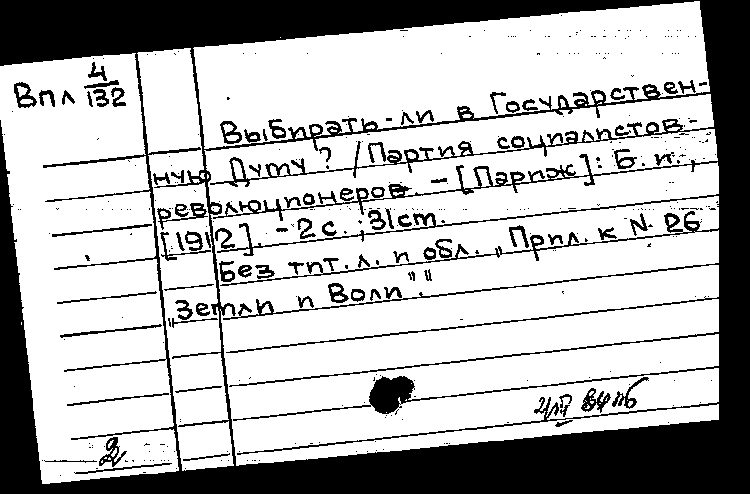 Впл 4/132
Выбирать-ли в Государствен-
ную Думу? /Партия социалистов-
революционеров. - [Париж]: Б. и.,
[1912]. - 2 с.; 31 см.
Без тит. л. и обл. „Прил. к № 26
„Земли и Воли"."
2